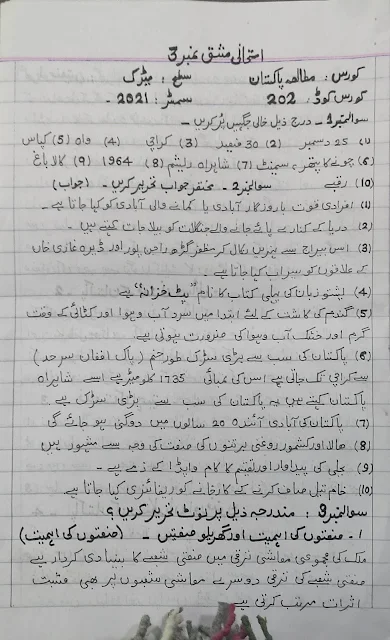 امتحانی مشق نمبر 3
کورس: مطالعہ پاکستان سطح: میٹرک
کورس کوڈ: 202 سمسٹر: 2021ء
سوال نمبر 1۔ درج ذیل خالی جگہیں پُر کریں۔
(1) 25 دسمبر (2) 30 فیصد (3) کراچی (4) واہ (5) کپاس
(6) چونے کا پتھر، سیمنٹ (7) شاہراہ ریشم (8) 1964 (9) کالا باغ
(10) رقبے سوال نمبر 2۔ مختصر جواب تحریر کریں۔ (جواب)
(1) افرادی قوت باروزگار آبادی یا کمانے والی آبادی کو کہا جاتا ہے۔
(2) دریا کے کنارے پائے جانے والے جنگلات کو بیلا جات کہتے ہیں۔
(3) اس بیراج سے نہریں نکال کر مظفر گڑھ، راجن پور اور ڈیرہ غازی خاں
کے علاقوں کو سیراب کیا جاتا ہے۔
(4) پشتو زبان کی پہلی کتاب کا نام "پٹہ خزانہ" ہے
(5) گندم کی کاشت کے لیئے ابتدا میں سرد آب و ہوا اور کٹائی کے وقت
گرم اور خشک آب و ہوا کی ضرورت ہوتی ہے۔
(6) پاکستان کی سب سے بڑی سڑک طورخم (پاک افغان سرحد)
سے کراچی تک جاتی ہے اس کی لمبائی 1735 کلومیٹر ہے اسے شاہراہ
پاکستان کہتے ہیں یہ پاکستان کی سب سے بڑی سڑک ہے
(7) پاکستان کی آبادی آئندہ 20 سالوں میں دوگنی ہو جائے گی
(8) ہالا اور کشمور روغنی برتنوں کی صنعت کی وجہ سے مشہور ہیں
(9) بجلی کی پیداوار اور تقسیم کا کام واپڈا کے ذمے ہے۔
(10) خام تیل صاف کرنے کے کارخانے کو ریفائنری کہا جاتا ہے
سوال نمبر 3: مندرجہ ذیل پر نوٹ تحریر کریں؟
1۔ صنعتوں کی اہمیت اور گھریلو صنعتیں۔ (صنعتوں کی اہمیت)
ملک کی مجموعی معاشی ترقی میں صنعتی شعبے کا بنیادی کردار ہے
صنعتی شعبے کی ترقی دوسرے معاشی شعبوں پر بھی مثبت
اثرات مرتب کرتی ہے